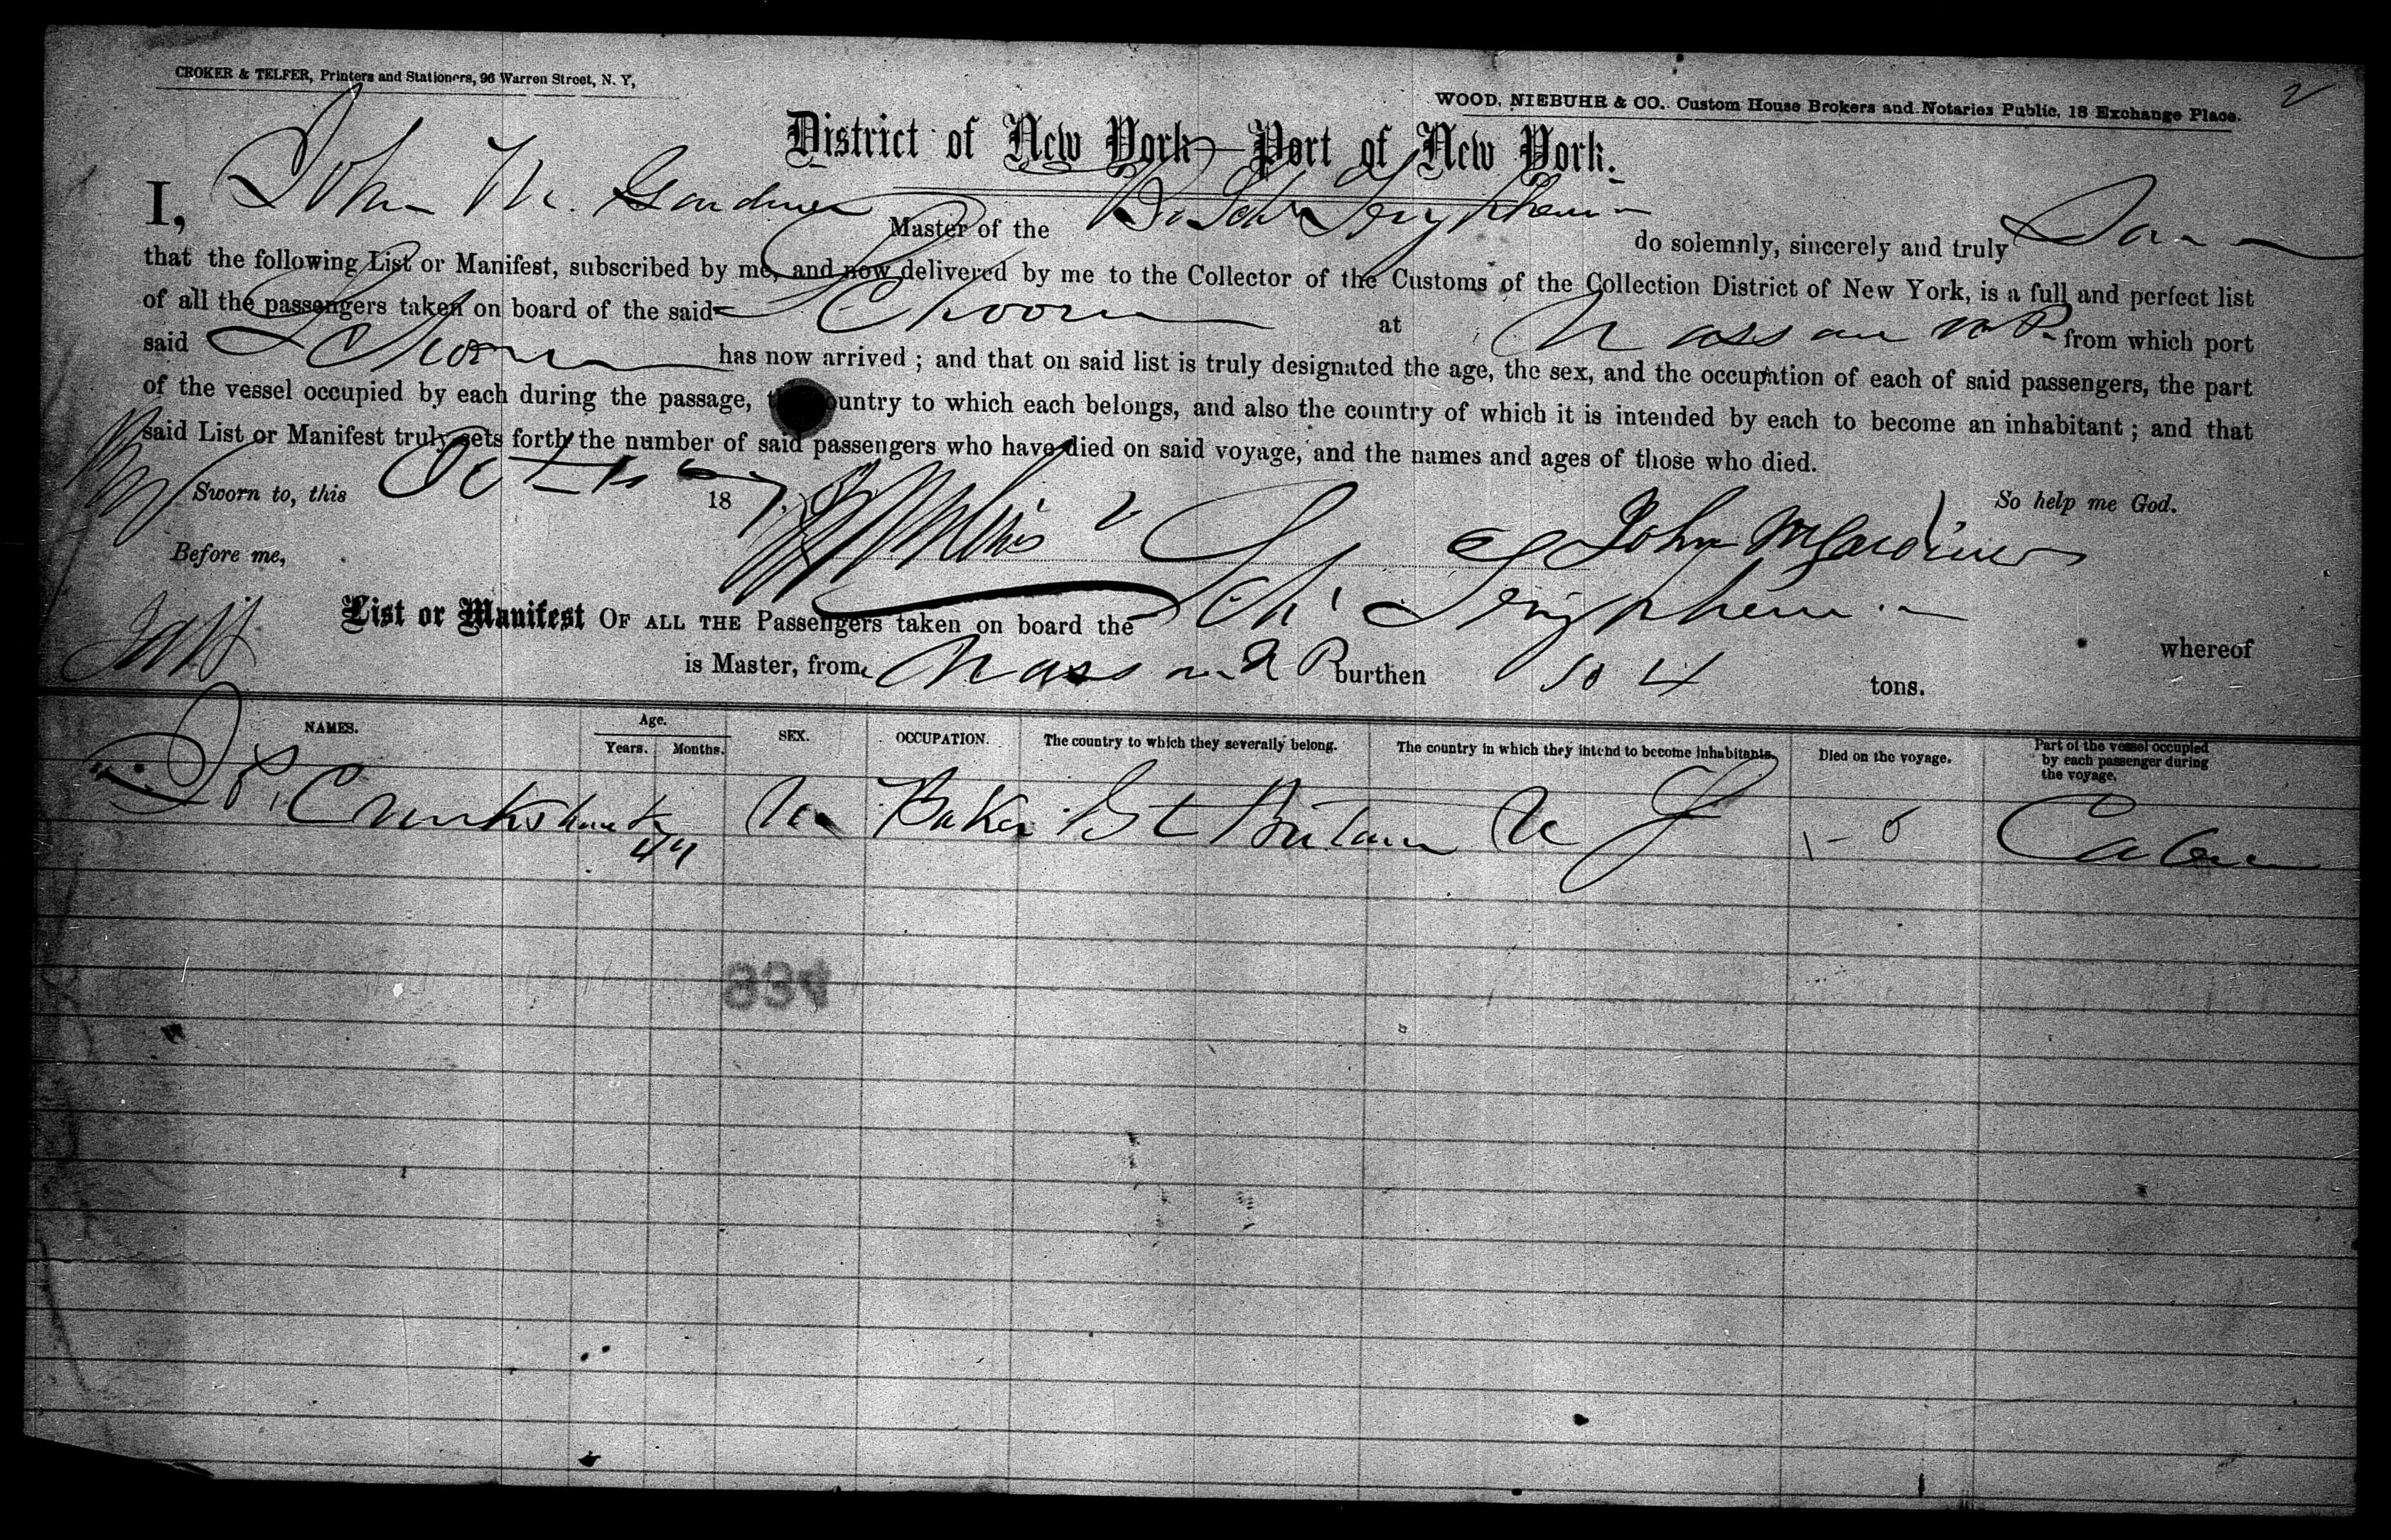 CROKER & TELFER, Printers and Stationers, 96 Warren Street, N. Y,
WOOD, NIEBUHR & CO.. Custom House Brokers and Notaries Public, 18 Exchange Place.
2
District of New York—Port of New York.
I, John M. Gardiner Master of the Br Schr do solemnly, sincerely and truly
that the following List or Manifest, subscribed by me, and now delivered by me to the Collector of the Customs of the Collection District of New York, is a full and perfect list
of all the passengers taken on board of the said Schooner at Nassau N P from which port
said Schooner has now arrived ; and that on said list is truly designated the age, the sex, and the occupation of each of said passengers, the part
of the vessel occupied by each during the passage, the country to which each belongs, and also the country of which it is intended by each to become an inhabitant ; and that
said List or Manifest truly sets forth the number of said passengers who have died on said voyage, and the names and ages of those who died.
Sworn to, this Oct 18 7 So help me God.
Before me, John M Gardiner
List or Manifest OF ALL THE Passengers taken on board the Schr whereof
is Master, from Nassau N P burthen tons.
NAMES. Age. Years. Months. SEX. OCCUPATION. The country to which they severally belong. The country in which they intend to become inhabitants. Died on the voyage. Part of the vessel occupied by each passenger during the voyage.
Cruikshank 44 Baker Gt Britain U S Cabin
834